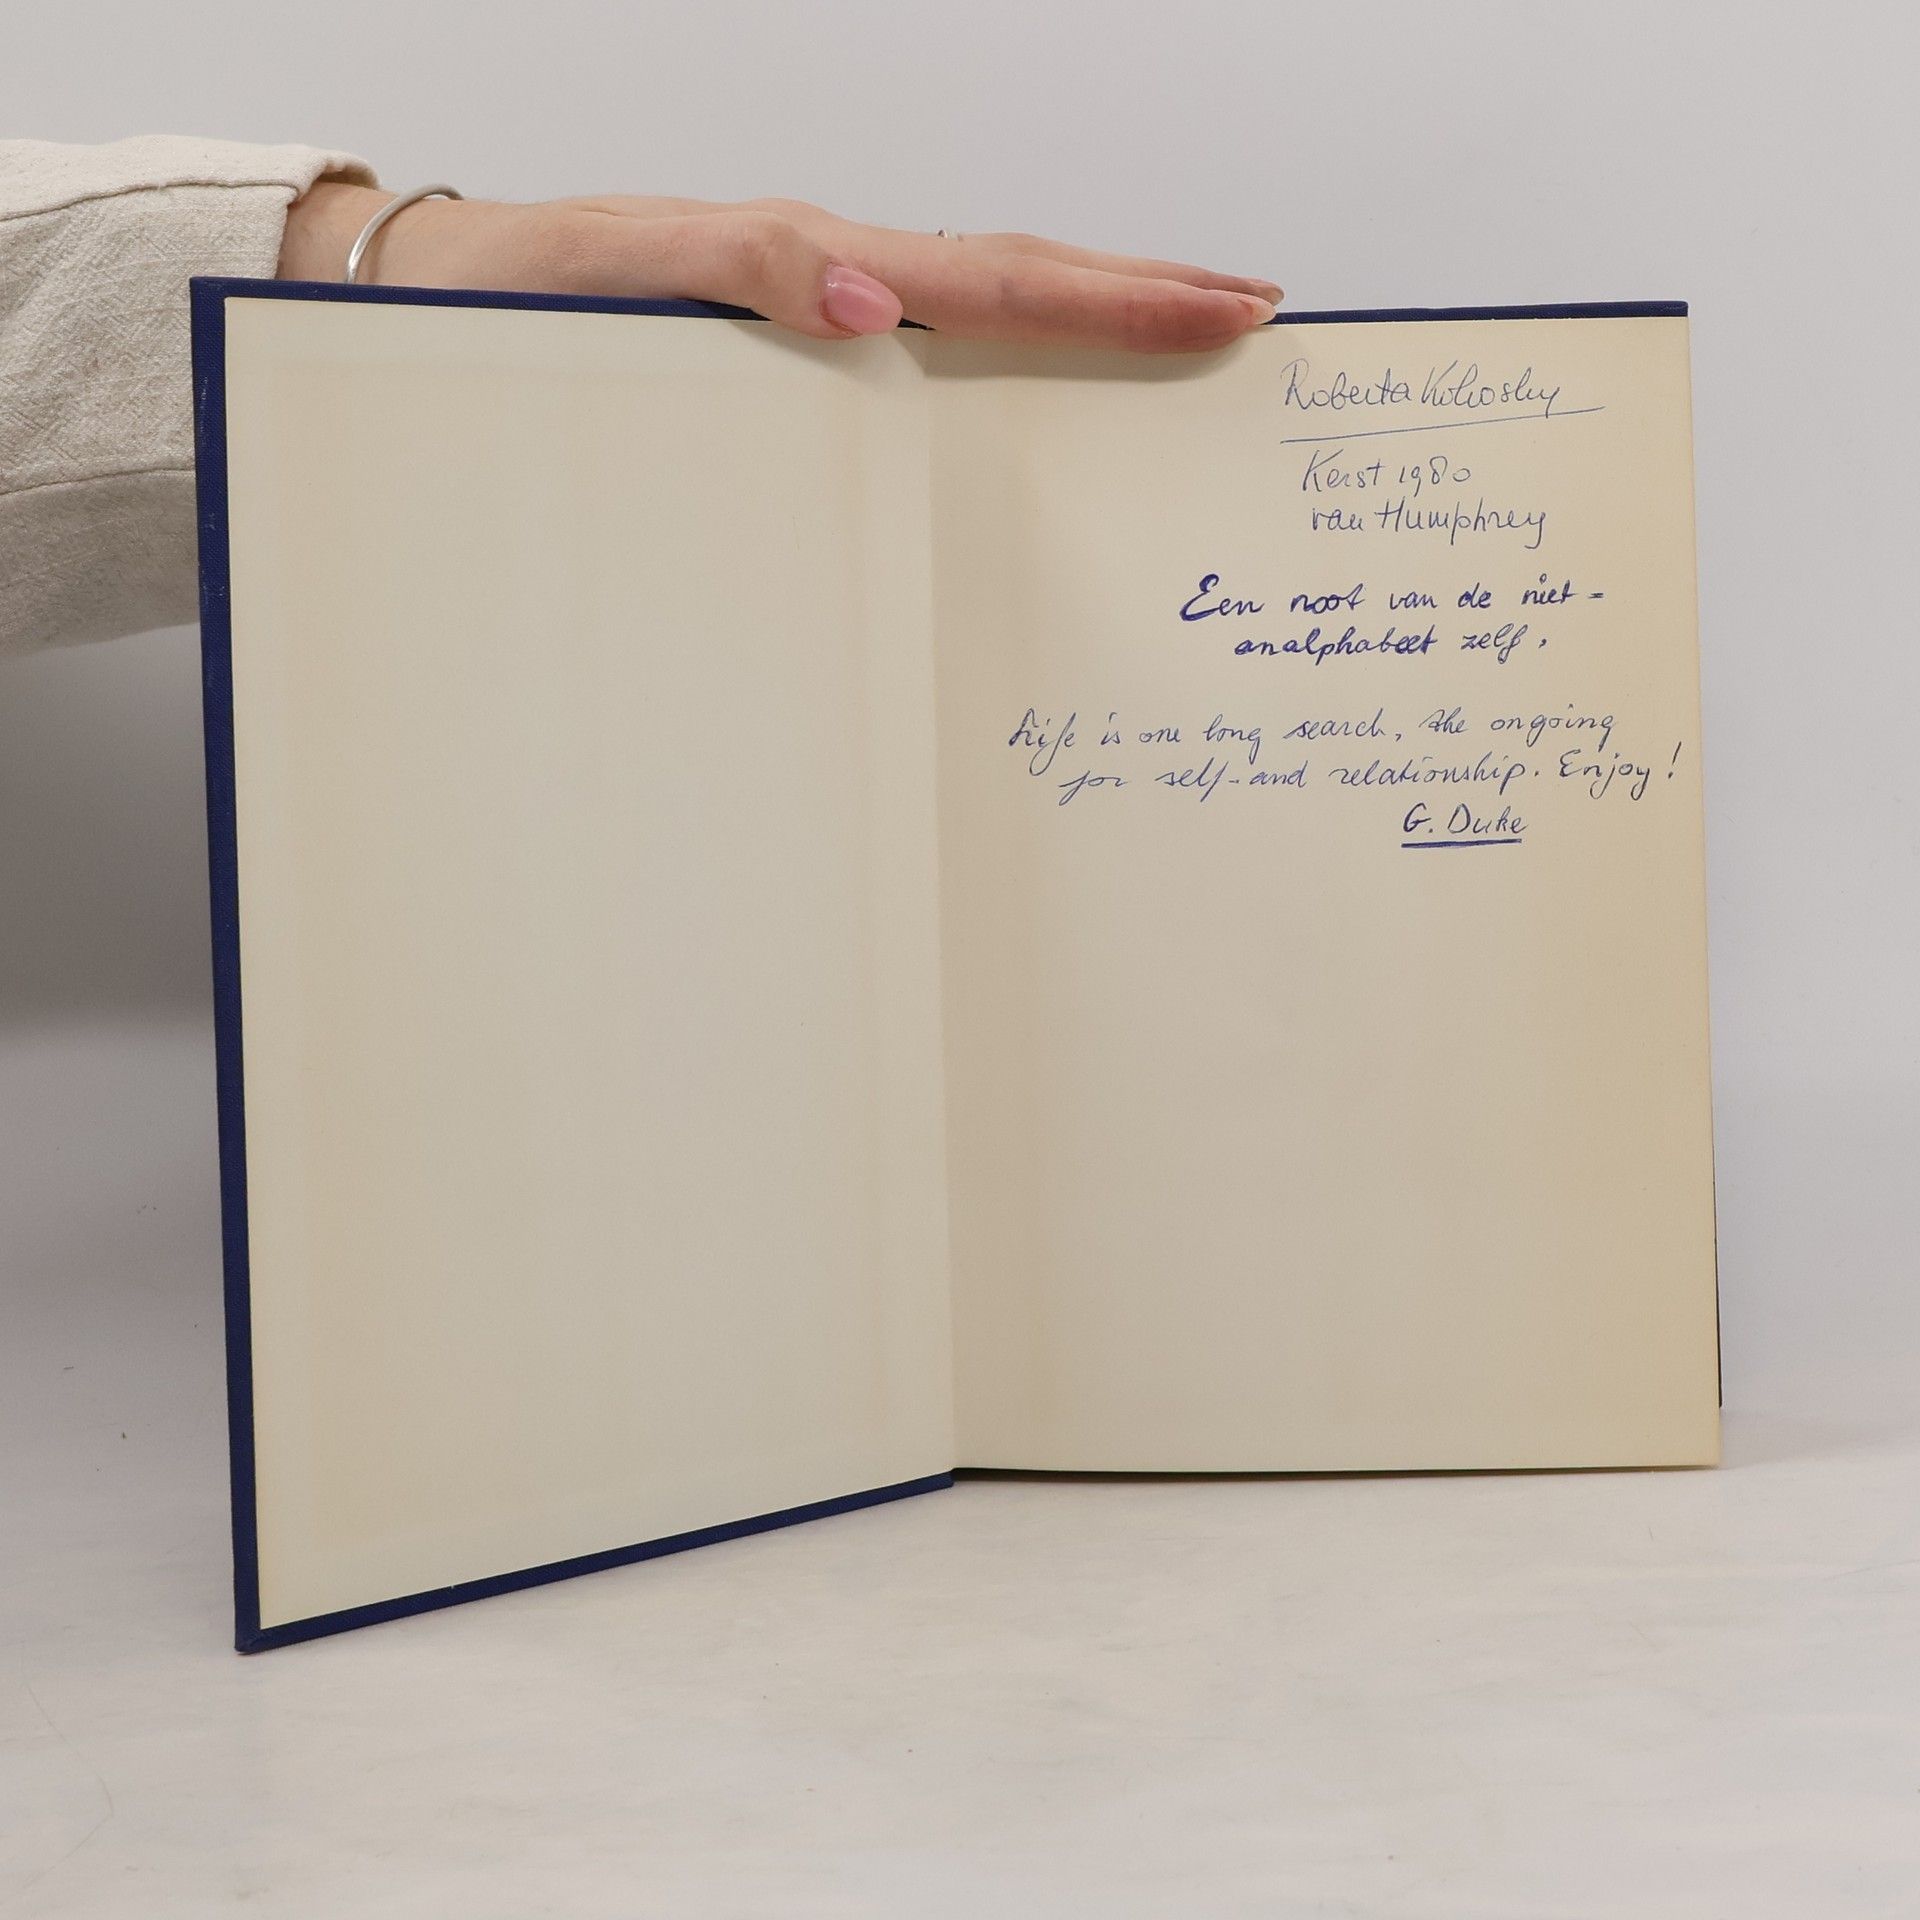 Roberta
Kerst 1980
van Humphrey
Een noot van de niet =
analphabeet zelf.
Life is one long search, the ongoing
for self-and relationship. Enjoy!
G. Duke